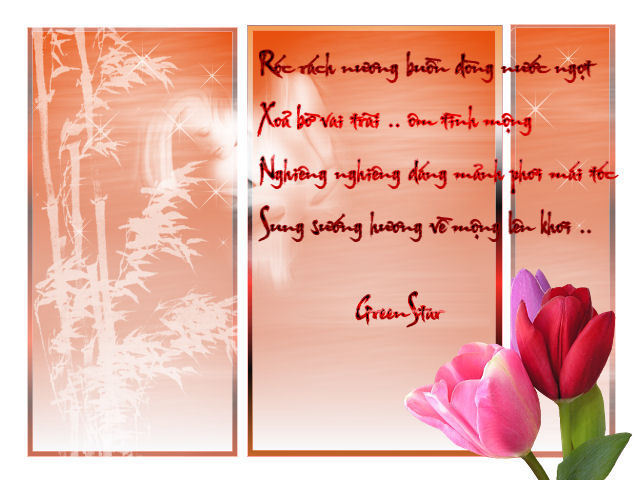 Róc rách nương buồn dòng nước ngọt
Xoả bờ vai trái .. ôm tình mộng
Nghiêng nghiêng dáng mảnh phơi mái tóc
Sung sướng hương về mộng lên khơi ..
GreenStar